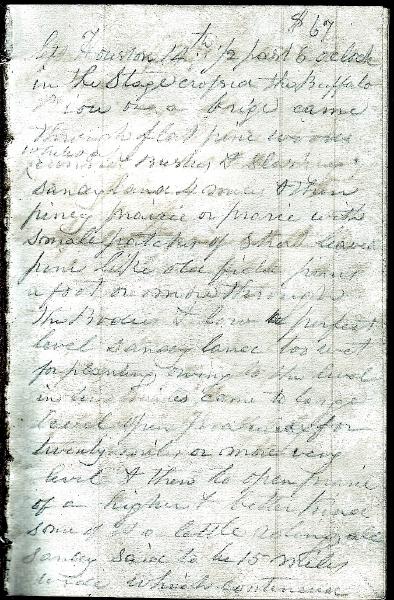 $67
Lef Houston 14th 1/2 past 6 oclock
in the Stage cropsed the Buffalo
on a brige came
through flat pine woods
Bushes &
sandy land 4 miles & then
piney prairie or prarie with
smale patches of short leaved
pine like old field pines
a foot or more through
the Bodies & low perfect
level sandy land too wet
for planting owing to the level
in ten miles came to large
level open Praries for
twenty miles or more very
level & then to open prarie
of a higher & better kind
some of it a little roling all
sandy said to be 15 miles
wide which continues